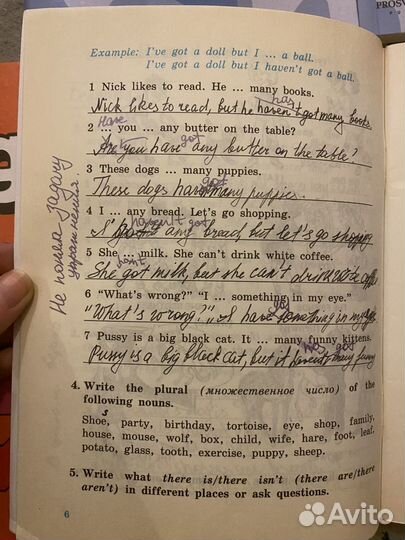 PROSV
Example: I've got a doll but I ... a ball.
I've got a doll but I haven't got a ball.
1 Nick likes to read. He ... many books.
has
Nick likes to read, but he haven't got many books.
2 ... you ... any butter on the table?
Have got
Are you have any butter on the table?
3 These dogs ... many puppies.
got
These dogs have many puppies.
4 I ... any bread. Let's go shopping.
haven't got
I any bread, but let's go shopping
5 She ... milk. She can't drink white coffee.
She got milk, but she can't drink
6 "What's wrong?" "I ... something in my eye."
got
"What's wrong?" „I have something in my eye
7 Pussy is a big black cat. It ... many funny kittens.
has got
Pussy is a big black cat, but it many funny
Не поняла задачу
упражнения.
4. Write the plural (множественное число) of the
following nouns.
s
Shoe, party, birthday, tortoise, eye, shop, family,
house, mouse, wolf, box, child, wife, hare, foot, leaf,
potato, glass, tooth, exercise, puppy, sheep.
5. Write what there is/there isn't (there are/there
aren't) in different places or ask questions.
6
Avito